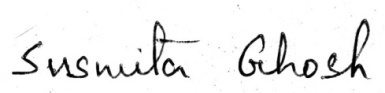 Susmita Ghosh